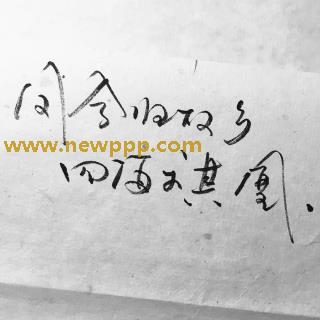 凤兮归故乡
www.newppp.com
四海求其凰.